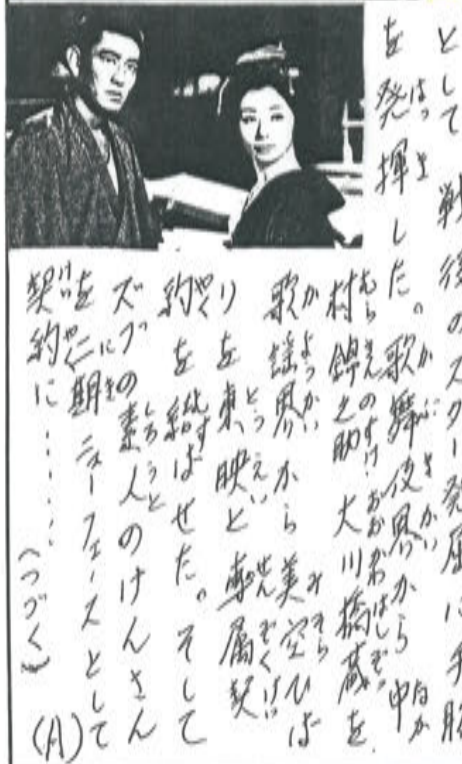 として 戦後のスター発屈に手腕
を発揮した。歌舞伎界から 中
村錦之助 大川橋蔵を
歌謡界から 美空ひば
りを東映と 専属契
約を結ばせた。そして
ズブの素人のけんさん
を二期ニューフェースとして
契約に………(つづく)
(月)